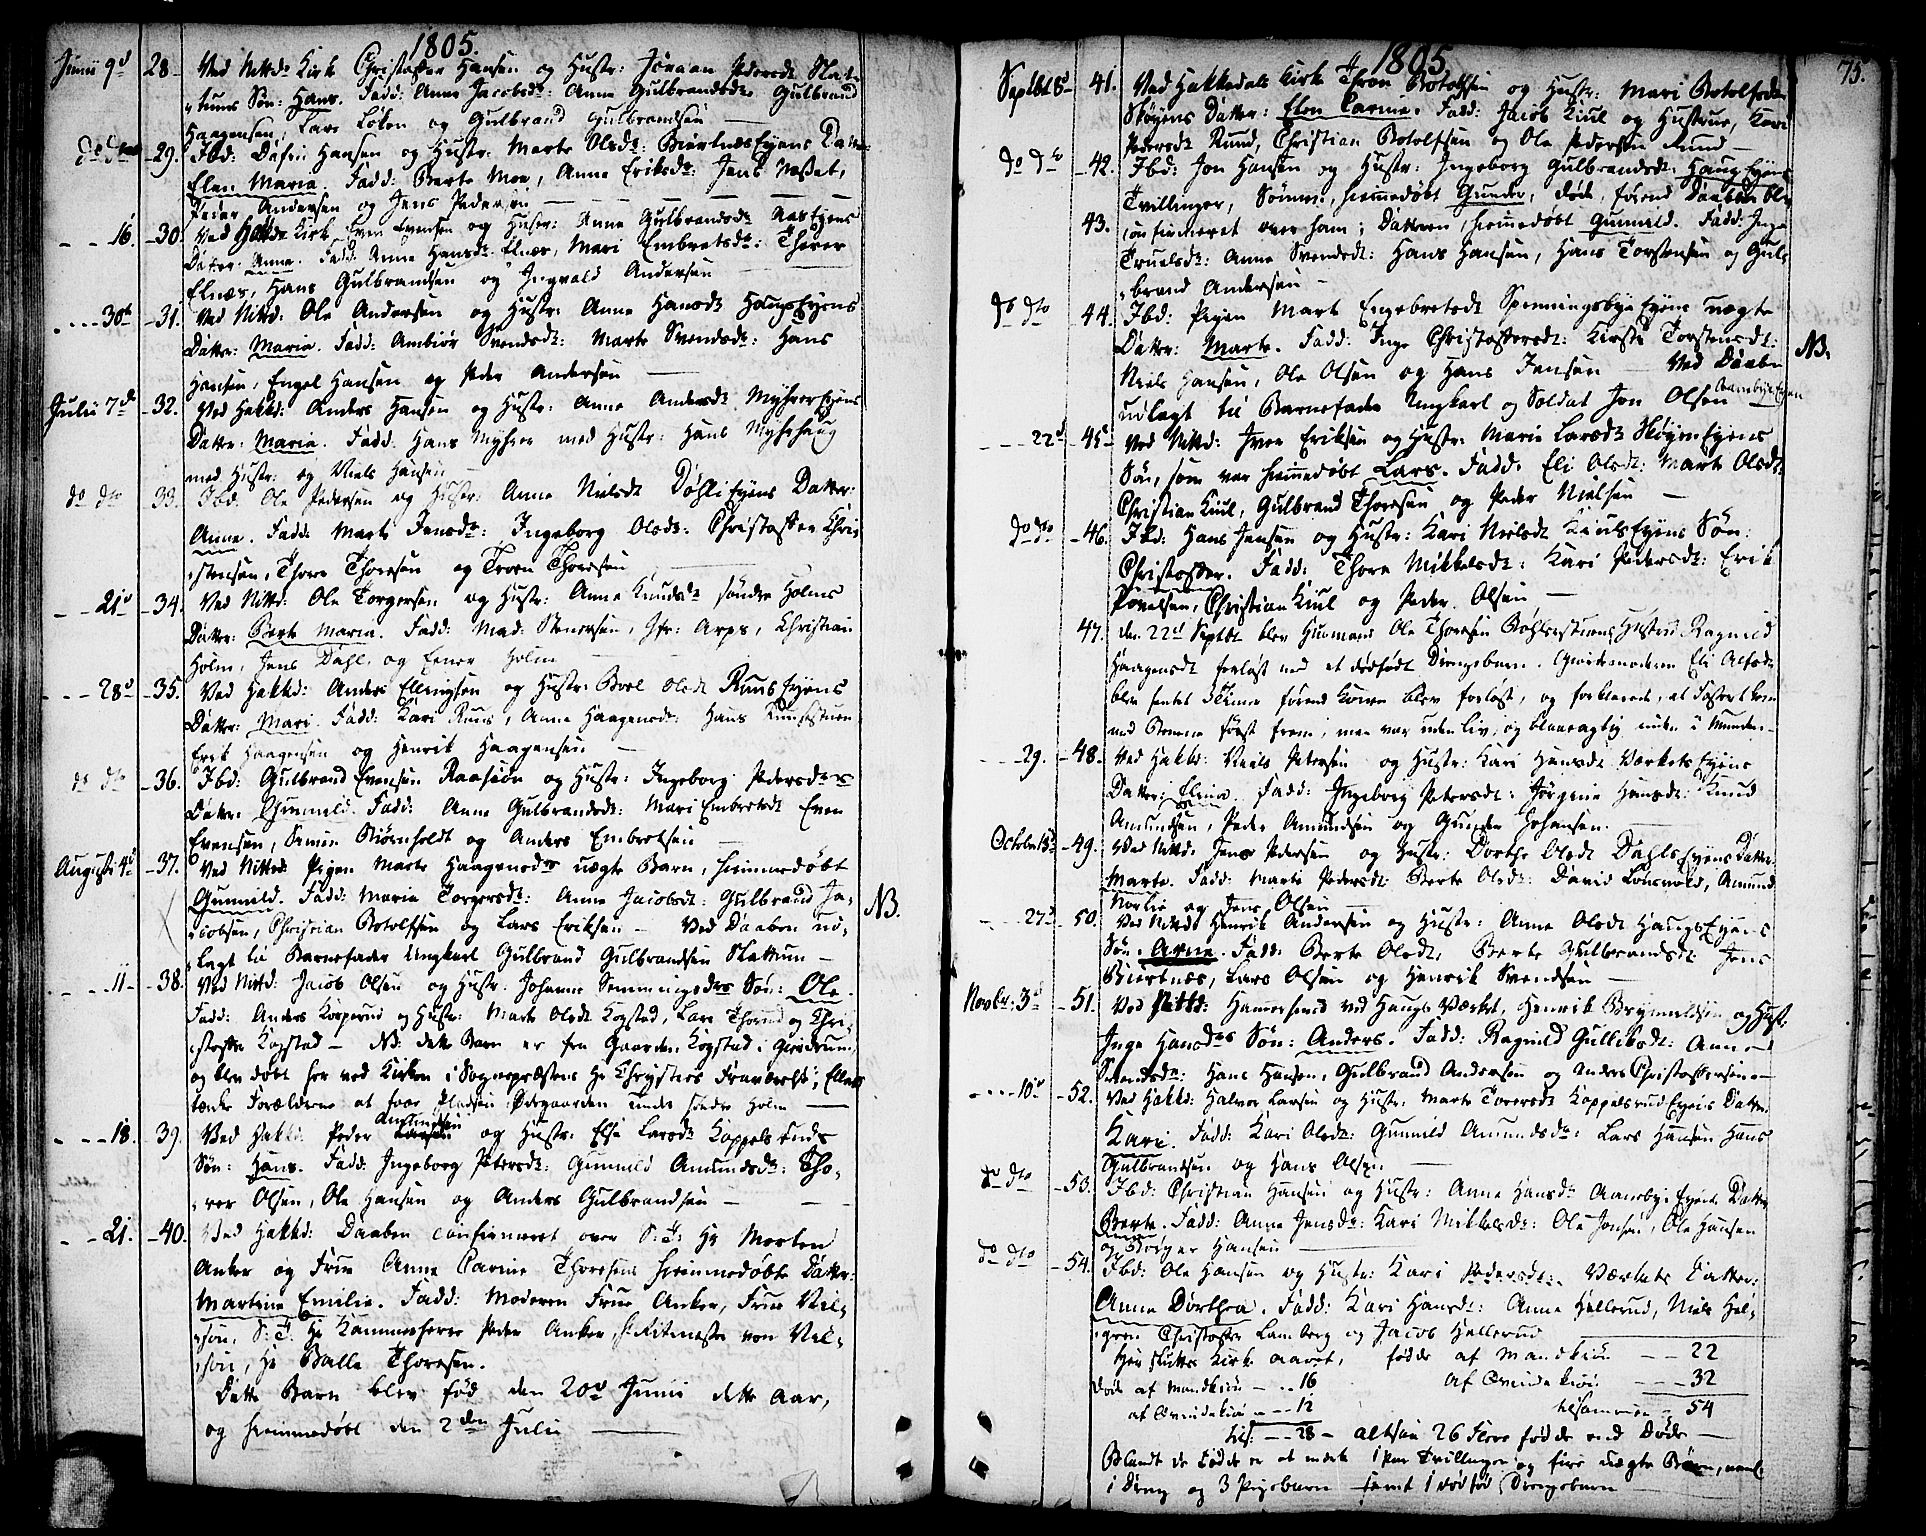 1805.
Junii 9d 28 Ved Nittd: Kirk Christopher Hansen og Hustr: Jöraan Pedersdt Slat-
tums Søn: Hans. Fadd: Anne Jacobsdr: Anne Gulbrandsdr: Gulbrand
Haagensen, Lars Løken og Gulbrand Gulbrandsen
do dto 29. Ibd: Hansen og Hustr: Marte Olsdr: Biertnæs Eyens Datter
Elen Maria. Fadd: Berte Moe, Anne Eriksdr: Jens
Peder Andersen og Jens Pedersen
16. 30. Ved Hakkd: Kirk Even Evensen og Hustr: Anne Gulbrandsdr Aas Eyens
Datter: Anna. Fadd: Anne Hansdr: Elnæs, Mari Embretsdr: Thorer
Elnæs, Hans Gulbrandsen og Ingvald Andersen
30te 31. Ved Nittd: Ole Andersen og Hustr: Anne Hansdr Haugs Eyens
Datter: Maria. Fadd: Ambiør Svendsdr: Marte Svendsdr: Hans
Hansen, Engel Hansen og Peder Andersen
Julii 7de 32. Ved Hakkd: Anders Hansen og Hustr: Anne Andersdr Myhrer Eyens
Datter: Maria. Fadd: Hans Myhrer med Hustr: Hans Myhrhaug
med Hustr: og Niels Hansen
do dto 33. Ibd: Ole Pedersen og Hustr: Anne Nielsdr Døhli Eyens Datter:
Anne. Fadd: Marte Jensdr: Ingeborg Olsdr: Christopher Chri-
stensen, Thore Thoresen og Troen Thoresen
21d 34. Ved Nittd: Ole Torgersen og Hustr: Anne Knudsdr søndre Holms
Datter: Berte Maria. Fadd: Mad: Stenersen, Jfr: Arps, Christian
Holm, Jens Dahl og Holm
28d 35. Ved Hakkd: Anders Ellingsen og Hustr: Boel Olsdr Ruus Eyens
Datter: Mari. Fadd: Kari Ruus, Anne Haagensdr: Hans
Erik Haagensen og Henrik Haagensen
do dto 36. Ibd: Gulbrand Evensen Raasiøn og Hustr: Ingeborg Pedersdrs
Datter: Gunnild. Fadd: Anne Gulbrandsdr: Mari Embretsdr Even
Evensen, Simen Biørnholdt og Anders Embretsen
Augusti 4d 37. Ved Nittd: Pigen Marte Haagensdrs uægte Barn, hiemmedøbt
Gunnild. Fadd: Maria Torgersdr: Anne Jacobsdr: Gulbrand Ja-
cobsen, Christian Botolfsen og Lars Eriksen — Ved Daaben ud-
lagt til Barnefader Ungkarl Gulbrand Gulbrandsen Slattum —
NB.
11 38. Ved Nittd: Jacob Olsen og Hustr: Johanne Semmingsdrs Søn: Ole.
Fadd: Anders Korperud og Hustr: Marte Olsdr Kogstad, Lars Thorud og Chri-
stopher Kogstad — NB: dette Barn er fra Gaarden Kogstad i Gierdrum,
og blev døbt her ved Kirken i Sognepræstens Hr Chrysties Fraværelse;
tænkte Forældrene at have Pladsen Østgaarden under søndre Holm
18. 39. Ved Hakkd: Peder Amundsen og Hustr: Else Larsdr Kappelsruds
Søn: Hans. Fadd: Ingeborg Petersdr: Gunnild Amundsdr: Tho-
rer Olsen, Ole Hansen og Anders Gulbrandsen
21. 40. Ved Hakkd: Daaben confirmeret over S: T: Hr Morten
Anker og Frue Anne Carine Thoresens hiemmedøbte Datter:
Martine Emilie. Fadd: Moderen Frue Anker, Frue Niel-
son, S: T: Hr Kammerherre Peder Anker, Hr Ritmester von Niel-
son, Hr Balle Thoresen.
Dette Barn blev fød den 20d Junii dette Aar,
og hiemmedøbt den 2den Julii
1805.
75.
Septbr 8d 41. Ved Hakkedals Kirk Thron Botolfsen og Hustr: Mari Botolfsdr
Skøyens Datter: Elen Carine. Fadd: Jacob Kiul og Hustrue, Kari
Pedersdr Ruud, Christian Botolfsen og Ole Pedersen Ruud
do do 42. Ibd: Jon Hansen og Hustr: Ingeborg Gulbrandsdr: Haug Eyens
Tvillinger, Sønnen, hiemmedøbt Gunder, døde, førend Daaben blev
43. confirmeret over ham; Datteren, hiemmedøbt Gunnild. Fadd: Inge
Truelsdr: Anne Svendsdr: Hans Hansen, Hans Torstensen og Gul-
brand Andersen
do dto 44. Ibd: Pigen Marte Engebretsdr Spenningsbye Eyens uægte
Datter: Marte. Fadd: Inge Christophersdr: Kirsti Torstensdr:
Niels Hansen, Ole Olsen og Hans Jensen — Ved Daaben
NB.
udlagt til Barnefader Ungkarl og Soldat Jon Olsen Aaneby Eyen
22d 45 Ved Nittd: Iver Eriksen og Hustr: Marie Larsdr Skøyen Eyens
Søn, som var hiemmedøbt Lars. Fadd: Eli Olsdr: Marte Olsdr:
Christian Kiul, Gulbrand Thoresen og Peder Nielsen
do dto 46. Ibd: Hans Jensen og Hustr: Kari Nielsdr Kiuls Eyens Søn:
Christopher. Fadd: Thore Mikkelsdr: Kari Pedersdr: Erik
Povelsen, Christian Kiul og Peder Olsen
47. den 22d Septbr blev Huusmand Ole Thoresen Hustrue Ragnild
Haagensdr forløst med et dødfødt Drengebarn. Giordemoderen Eli
blev hentet Timer førend Konen blev forløst, og forklarede, at Fosteret kom
med Benene først frem, men var uden Liv, og blaaeagtig inden i Munden
29. 48. Ved Hakkd: Niels Petersen og Hustr: Kari Hansdr Værkets Eyens
Datter: Elina. Fadd: Ingeborg Petersdr: Jørgine Hansdr: Knud
Amundsen, Peder Amundsen og Gunder Johansen.
Octobr 13d 49. Ved Nittd: Jens Pedersen og Hustr: Dorthe Olsdr Dahls Eyens Datter:
Marte. Fadd: Marte Pedersdr Berte Olsdr: David Amund
Norlie og Jens Olsen
27d 50. Ved Nittd: Henrik Andersen og Hustr: Anne Olsdr Haugs Eyens
Søn: Arne. Fadd: Berte Olsdr, Berte Gulbrandsdr: Jens
Biertnæs, Lars Olsen og Henrik Svendsen
Novbr. 3d 51. Ved Nittd: Hammersmed ved Haugs Værket, Henrik Brynnildsen og Hustr:
Inge Hansdrs Søn: Anders. Fadd: Ragnild Gulliksdr: Anne
Svendsdr: Hans Hansen, Gulbrand Andersen og Anders Christophersen
10d 52. Ved Hakkd: Halvor Larsen og Hustr: Marte Torersdr Kappelsrud Eyens Datter:
Kari. Fadd: Kari Olsdr: Gunnild Amundsdr: Lars Hansen Hans
Gulbrandsen og Hans Olsen
do dto 53. Ibd: Christian Hansen og Hustr: Anne Hansdr Aaneby Eyens Datter
Berte. Fadd: Anne Jensdr: Kari Mikkelsdr: Ole Jonsen, Ole Hansen
og Børger Hansen
do dto 54. Ibd: Ole Hansen og Hustr: Kari Pedersdr: Værkets Datter:
Anne Dorthea. Fadd: Kari Hansdr: Anne Hellerud, Niels Hel-
gren Christopher Lamberg og Jacob Hellerud
Her slutter Kirke Aaret, fødde af Mandkiøn — 22
Døde af Mandkiøn — 16 af Qvindekiøn — 32
af Qvindekiøn — 12 tilsammen — 54
tils: — 28 — altsaa 26 flere fødde end Døde —
Blandt de Fødde er at mærke 1 Par Tvillinger og fire uægte Børn, nemlig
1 Dreng og 3 Pigebørn samt 1 dødfød Drengebarn